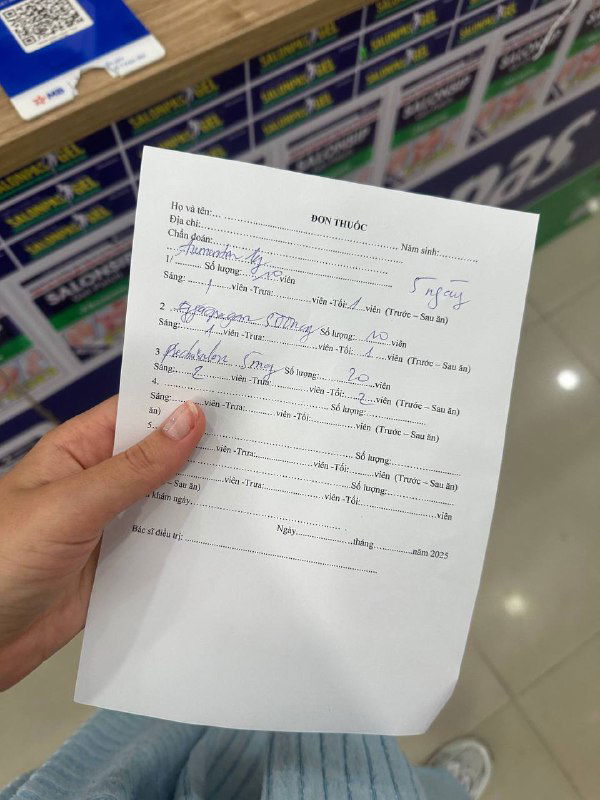 MB
SALONPAS GEL
SALONSIP
ĐƠN THUỐC
Họ và tên:........ Năm sinh:............
Địa chỉ:........
Chẩn đoán:........
5 ngày
1/ Augmentin 1g Số lượng: 10 viên
Sáng: 1 viên -Trưa:............viên -Tối: 1 viên (Trước – Sau ăn)
2 500mg Số lượng: 10 viên
Sáng: 1 viên -Trưa:............viên -Tối: 1 viên (Trước – Sau ăn)
3 5mg Số lượng: 20 viên
Sáng: 2 viên -Trưa:............viên -Tối: 2 viên (Trước – Sau ăn)
4. ........ Số lượng:............
Sáng:........viên -Trưa:............viên -Tối:............viên (Trước – Sau ăn)
5. ........ Số lượng:............
viên -Trưa:............viên -Tối:............viên (Trước – Sau ăn)
........ Số lượng:............
viên -Trưa:............viên -Tối:............viên
– Sau ăn)
khám ngày........
Ngày............tháng............năm 2025
Bác sĩ điều trị:........